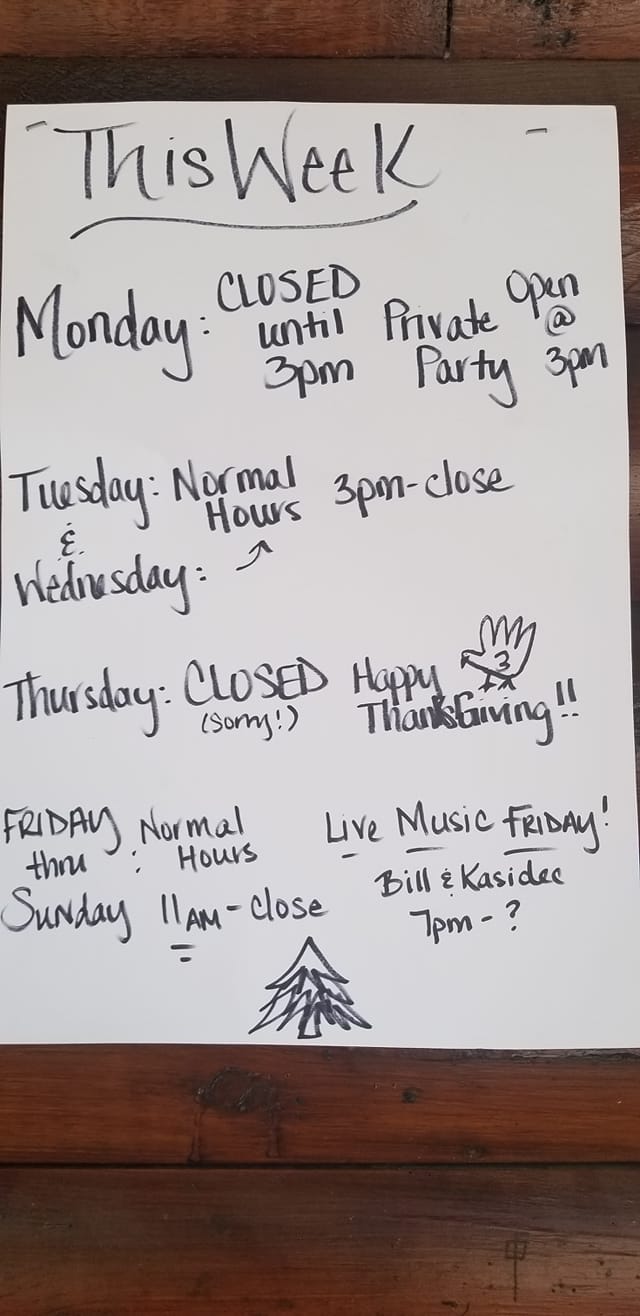 This Week
Monday: CLOSED until 3pm Private Party Open @ 3pm
Tuesday: Normal Hours 3pm-close
&
Wednesday:
Thursday: CLOSED (sorry!) Happy ThanksGiving!!
3
FRIDAY thru Sunday : Normal Hours 11AM-close
Live Music FRIDAY!
Bill & Kasidee
7pm-?